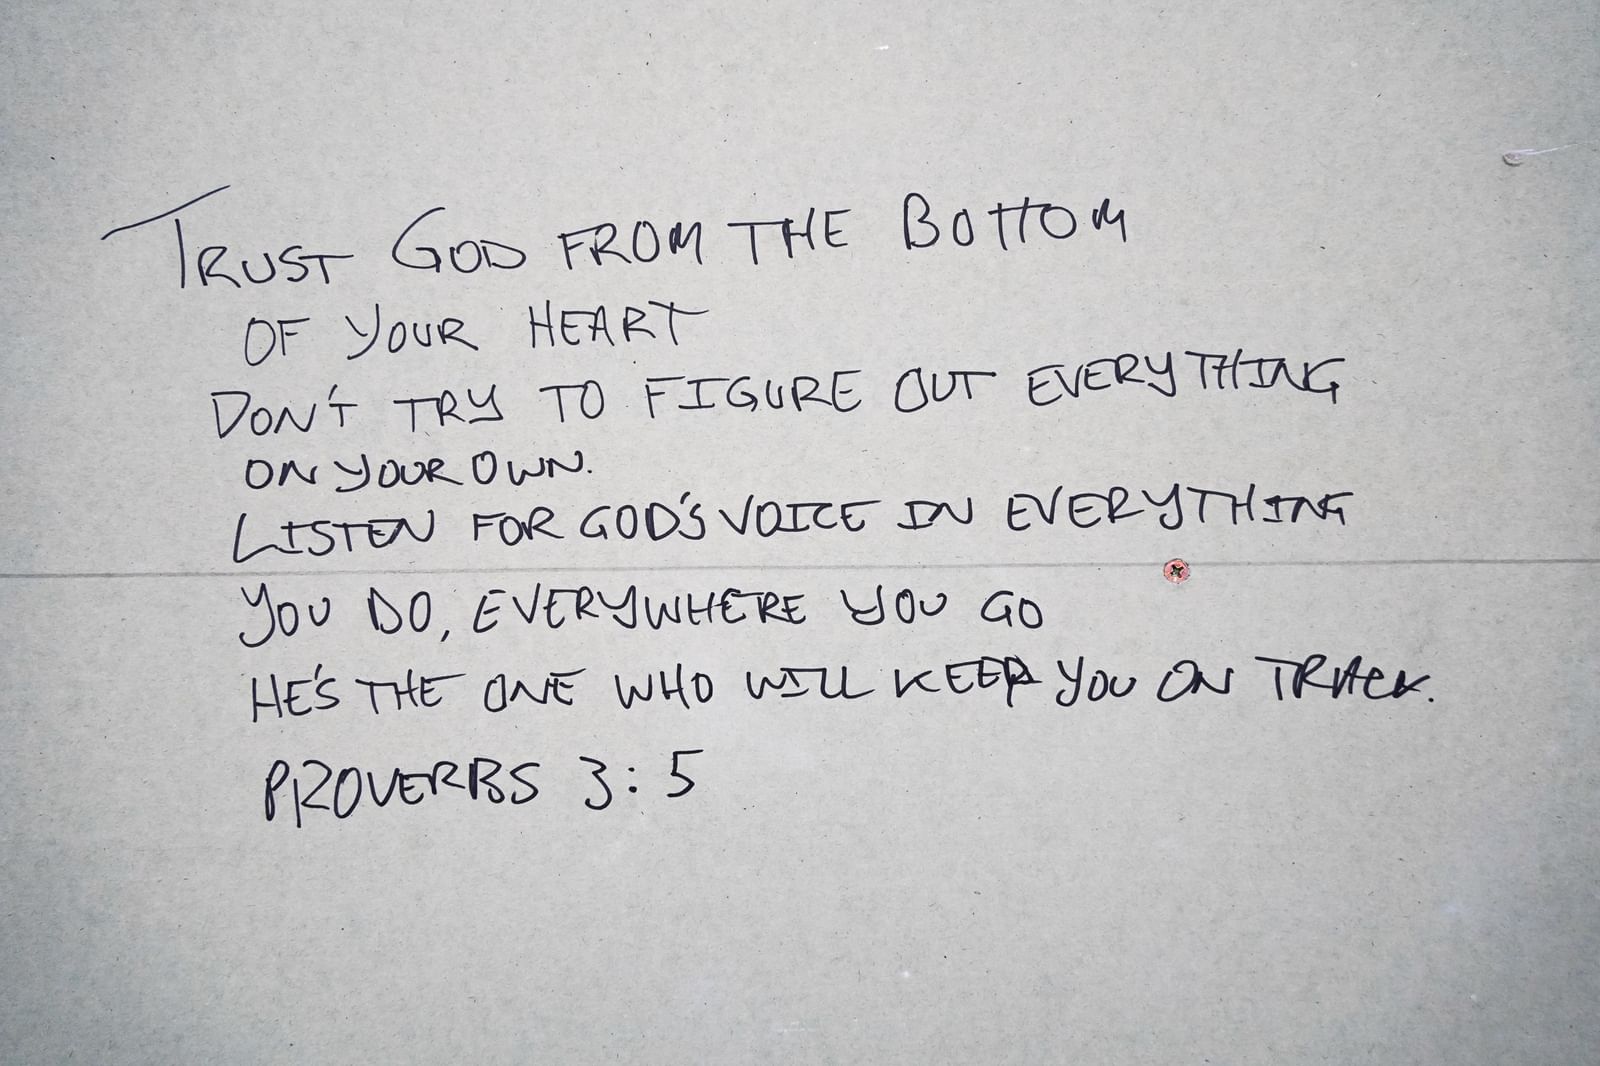 TRUST GOD FROM THE BOTTOM
OF YOUR HEART
DON'T TRY TO FIGURE OUT EVERYTHING
ON YOUR OWN.
LISTEN FOR GOD'S VOICE IN EVERYTHING
YOU DO, EVERYWHERE YOU GO
HE'S THE ONE WHO WILL KEEP YOU ON TRACK.
PROVERBS 3:5